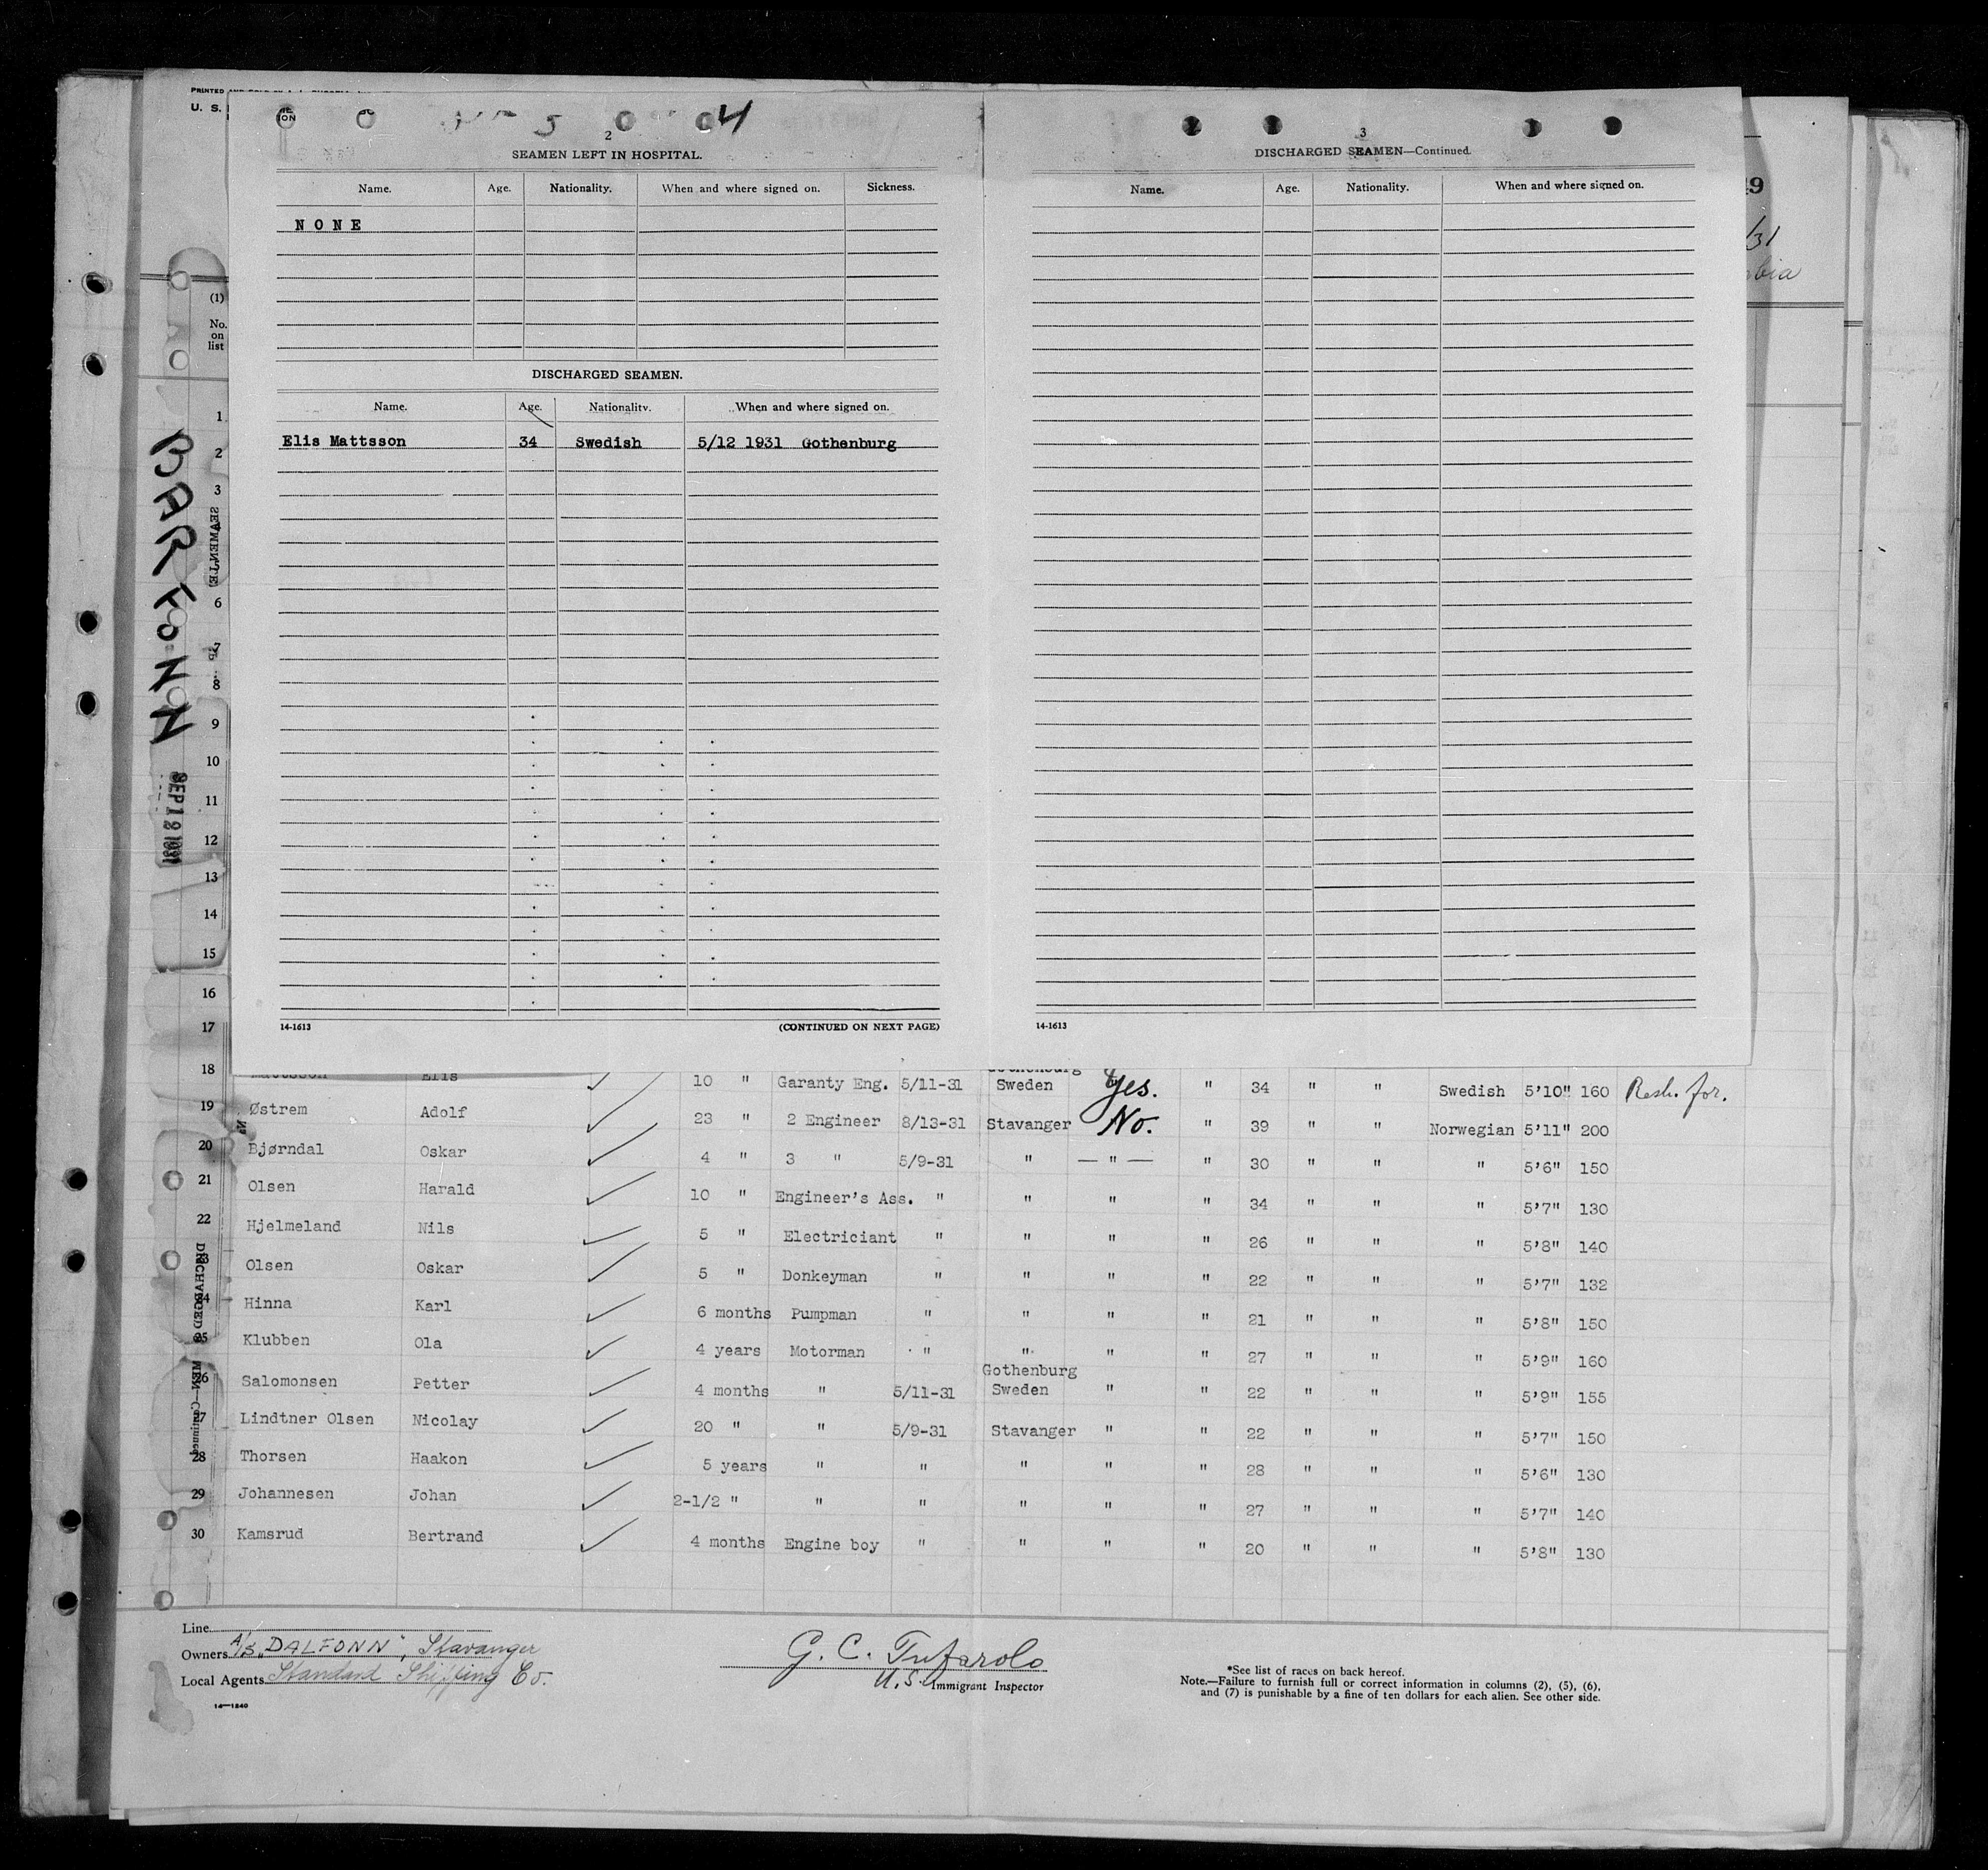 U. S.
4
2
SEAMEN LEFT IN HOSPITAL.
Name. Age. Nationality. When and where signed on. Sickness.
NONE
DISCHARGED SEAMEN.
Name. Age. Nationality. When and where signed on.
Elis Mattsson 34 Swedish 5/12 1931 Gothenburg
14-1613 (CONTINUED ON NEXT PAGE)
3
DISCHARGED SEAMEN—Continued.
Name. Age. Nationality. When and where signed on.
14-1613
(1)
No. on list
1
2
3
6
7
8
9
10
11
12
13
14
15
16
17
BARFONN
SEP 12 1931
18 Mattsson Elis 10 " Garanty Eng. 5/11-31 Gothenburg Sweden Yes. " 34 " " Swedish 5'10" 160 Resh. for.
19 Østrem Adolf 23 " 2 Engineer 8/13-31 Stavanger No. " 39 " " Norwegian 5'11" 200
20 Bjørndal Oskar 4 " 3 " 5/9-31 " — " — " 30 " " " 5'6" 150
21 Olsen Harald 10 " Engineer's Ass. " " " " 34 " " " 5'7" 130
22 Hjelmeland Nils 5 " Electriciant " " " " 26 " " " 5'8" 140
23 Olsen Oskar 5 " Donkeyman " " " " 22 " " " 5'7" 132
24 Hinna Karl 6 months Pumpman " " " " 21 " " " 5'8" 150
25 Klubben Ola 4 years Motorman " " " " 27 " " " 5'9" 160
26 Salomonsen Petter 4 months " 5/11-31 Gothenburg Sweden " " 22 " " " 5'9" 155
27 Lindtner Olsen Nicolay 20 " " 5/9-31 Stavanger " " 22 " " " 5'7" 150
28 Thorsen Haakon 5 years " " " " " 28 " " " 5'6" 130
29 Johannesen Johan 2-1/2 " " " " " " 27 " " " 5'7" 140
30 Kamsrud Bertrand 4 months Engine boy " " " " 20 " " " 5'8" 130
Line
Owners A/S "DALFONN", Stavanger
Local Agents Standard Shipping Co.
14—1240
G. C. Tufarolo
U.S. Immigrant Inspector
*See list of races on back hereof.
Note.—Failure to furnish full or correct information in columns (2), (5), (6),
and (7) is punishable by a fine of ten dollars for each alien. See other side.